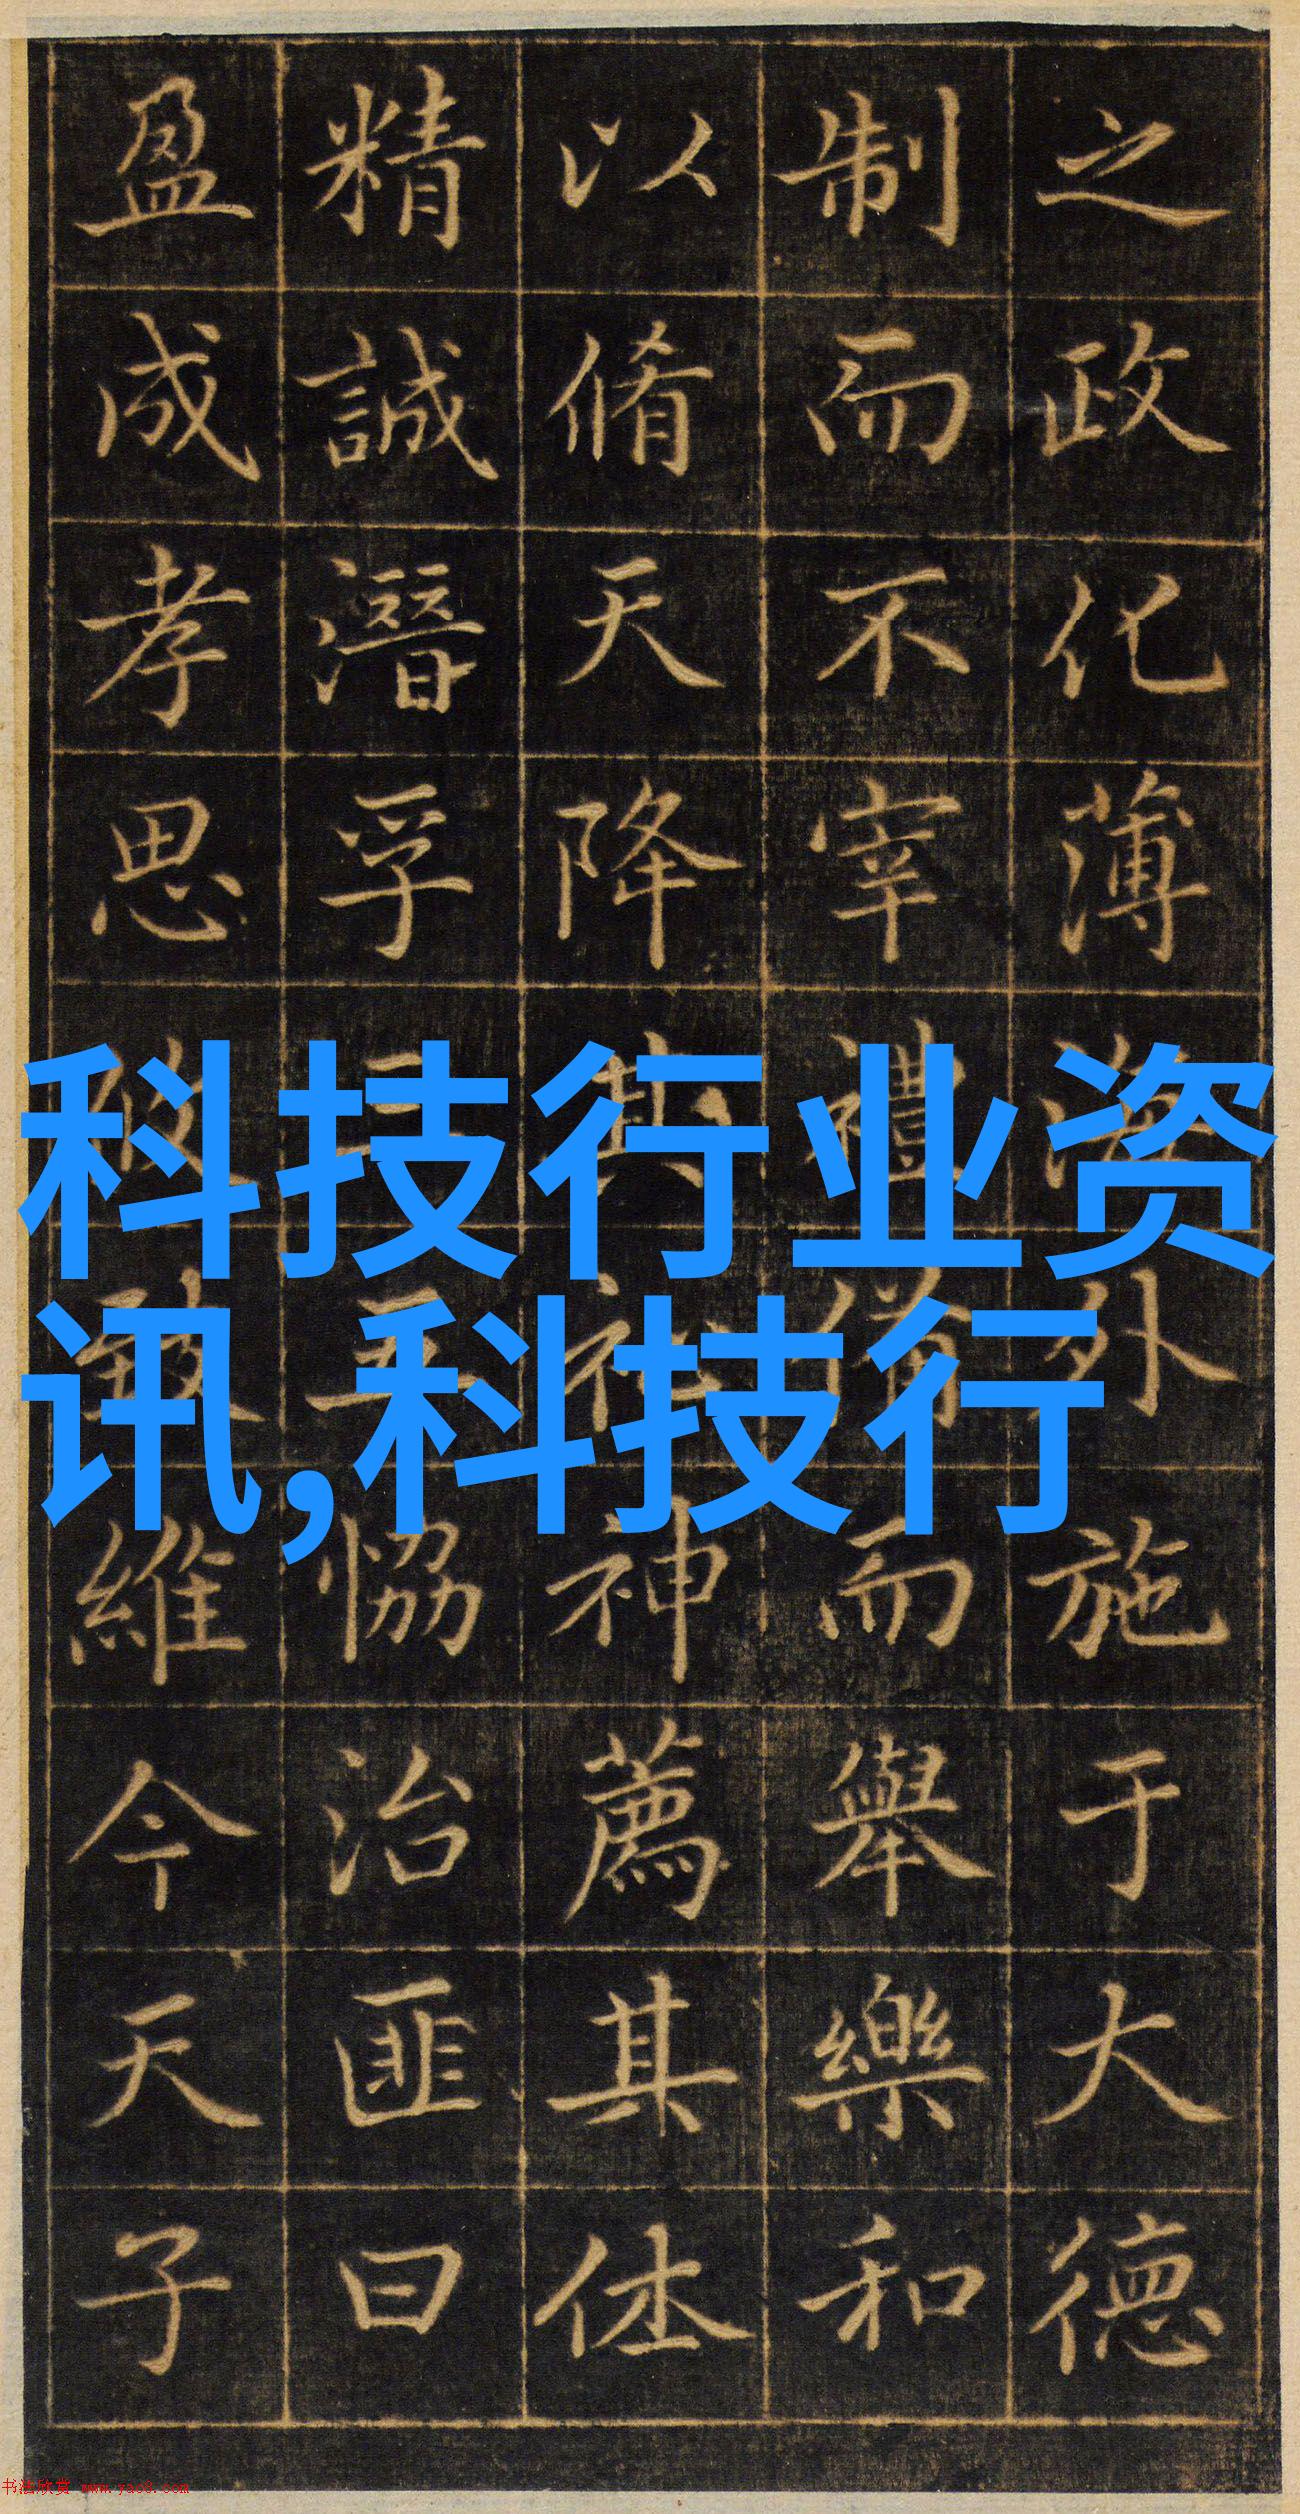 之政化薄海外施于大德
制而不宰禮備而舉樂和
以脩天降其礼神薦其休
精誠潛孚玉恊治匪曰
盈成孝思致維今天子
科技行业资
讯,科技行
书法欣赏 www.yac8.com